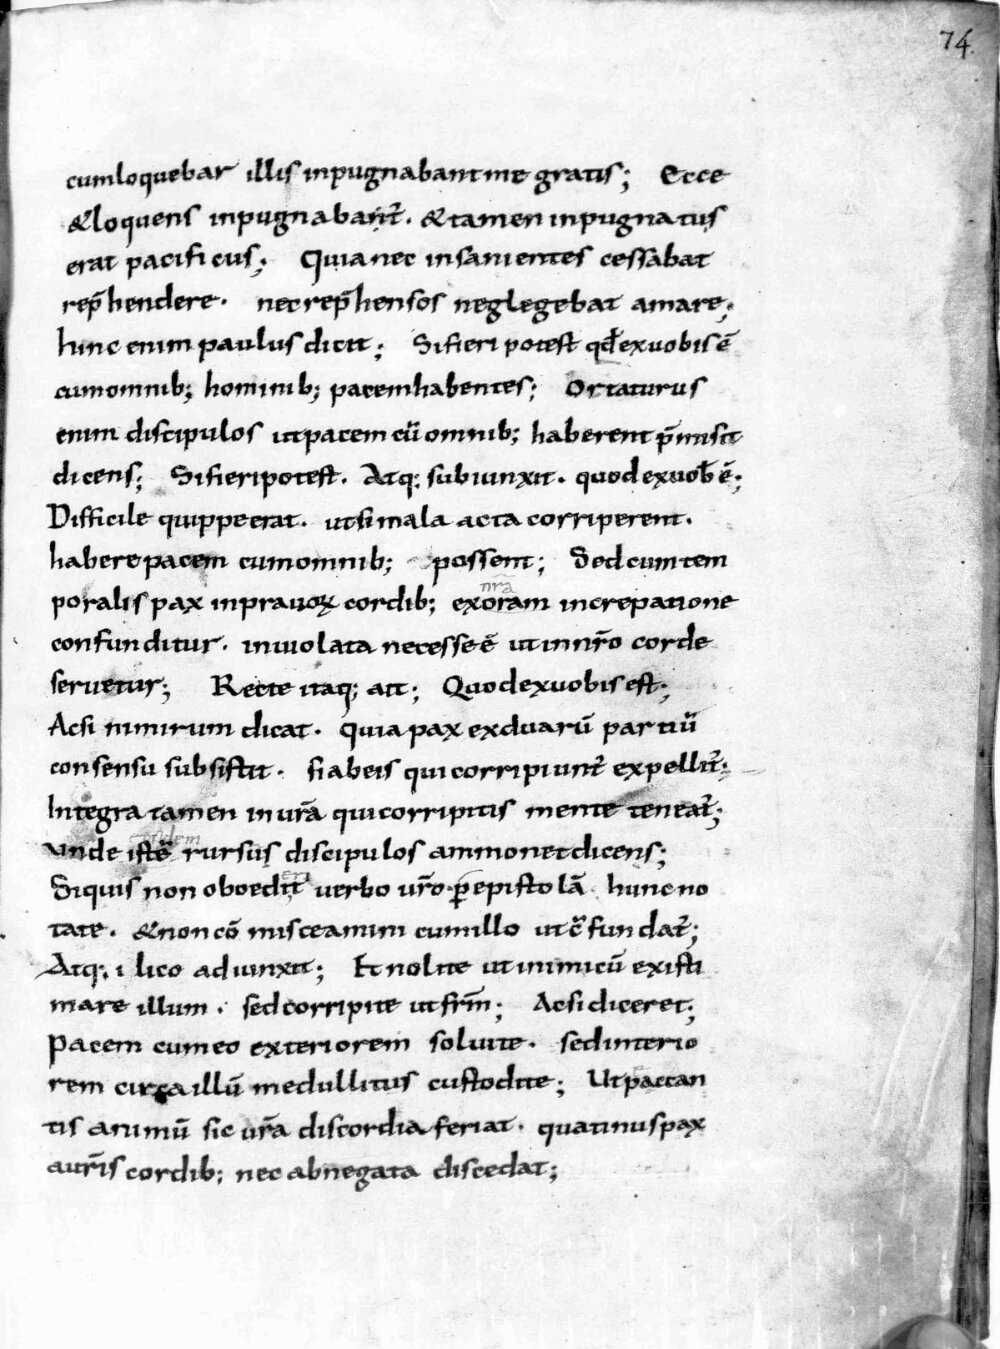 74.
cumloquebar illis inpugnabant me gratis; Ecce
&loquens inpugnabant᷑. &tamen inpugnatus
erat pacificus; Quia nec insanientes cessabat
rep̄hendere. nec rep̄hensos neglegebat amare;
hinc enim paulus dicit; Si fieri potest qđ exuobis ē
cum omnib; hominib; pacem habentes; Ortaturus
enim discipulos ut pacem cū omnib; haberent p̄misit
dicens; Si fieri potest. Atq; subiunxit. quod exuob̄ ē;
Difficile quippe erat. ut si mala acta corriperent.
habere pacem cum omnib; possent; Sed cum tem
poralis pax in prauoꝝ cordib; ex oram increpatione
nr̄a
confunditur. inuiolata necesse ē ut in nr̄o corde
seruetur; Recte itaq; ait; Quod exuobis est;
Ac si nimirum dicat. quia pax ex duarū partiū
consensu subsistit. si abeis qui corripiunt᷑ expellit᷑;
Integra tamen in ur̄a qui corripitis mente teneat᷑;
Unde istē rursus discipulos ammonet dicens;
Siquis non oboedit uerbo ur̄o. ꝑ epistolā hunc no
tate. & non cō misceamini cum illo ut cō̄fundat᷑;
Atq; ilico adiunxit; Et nolite ut inimicū existi
mare illum. sed corripite ut fr̄m; Ac si diceret;
Pacem cum eo exteriorem soluite. sed interio
rem circa illū medullitus custodite; Ut peccan
tis animū sic ur̄a discordia feriat. quatinus pax
a ur̄is cordib; nec abnegata discedat;